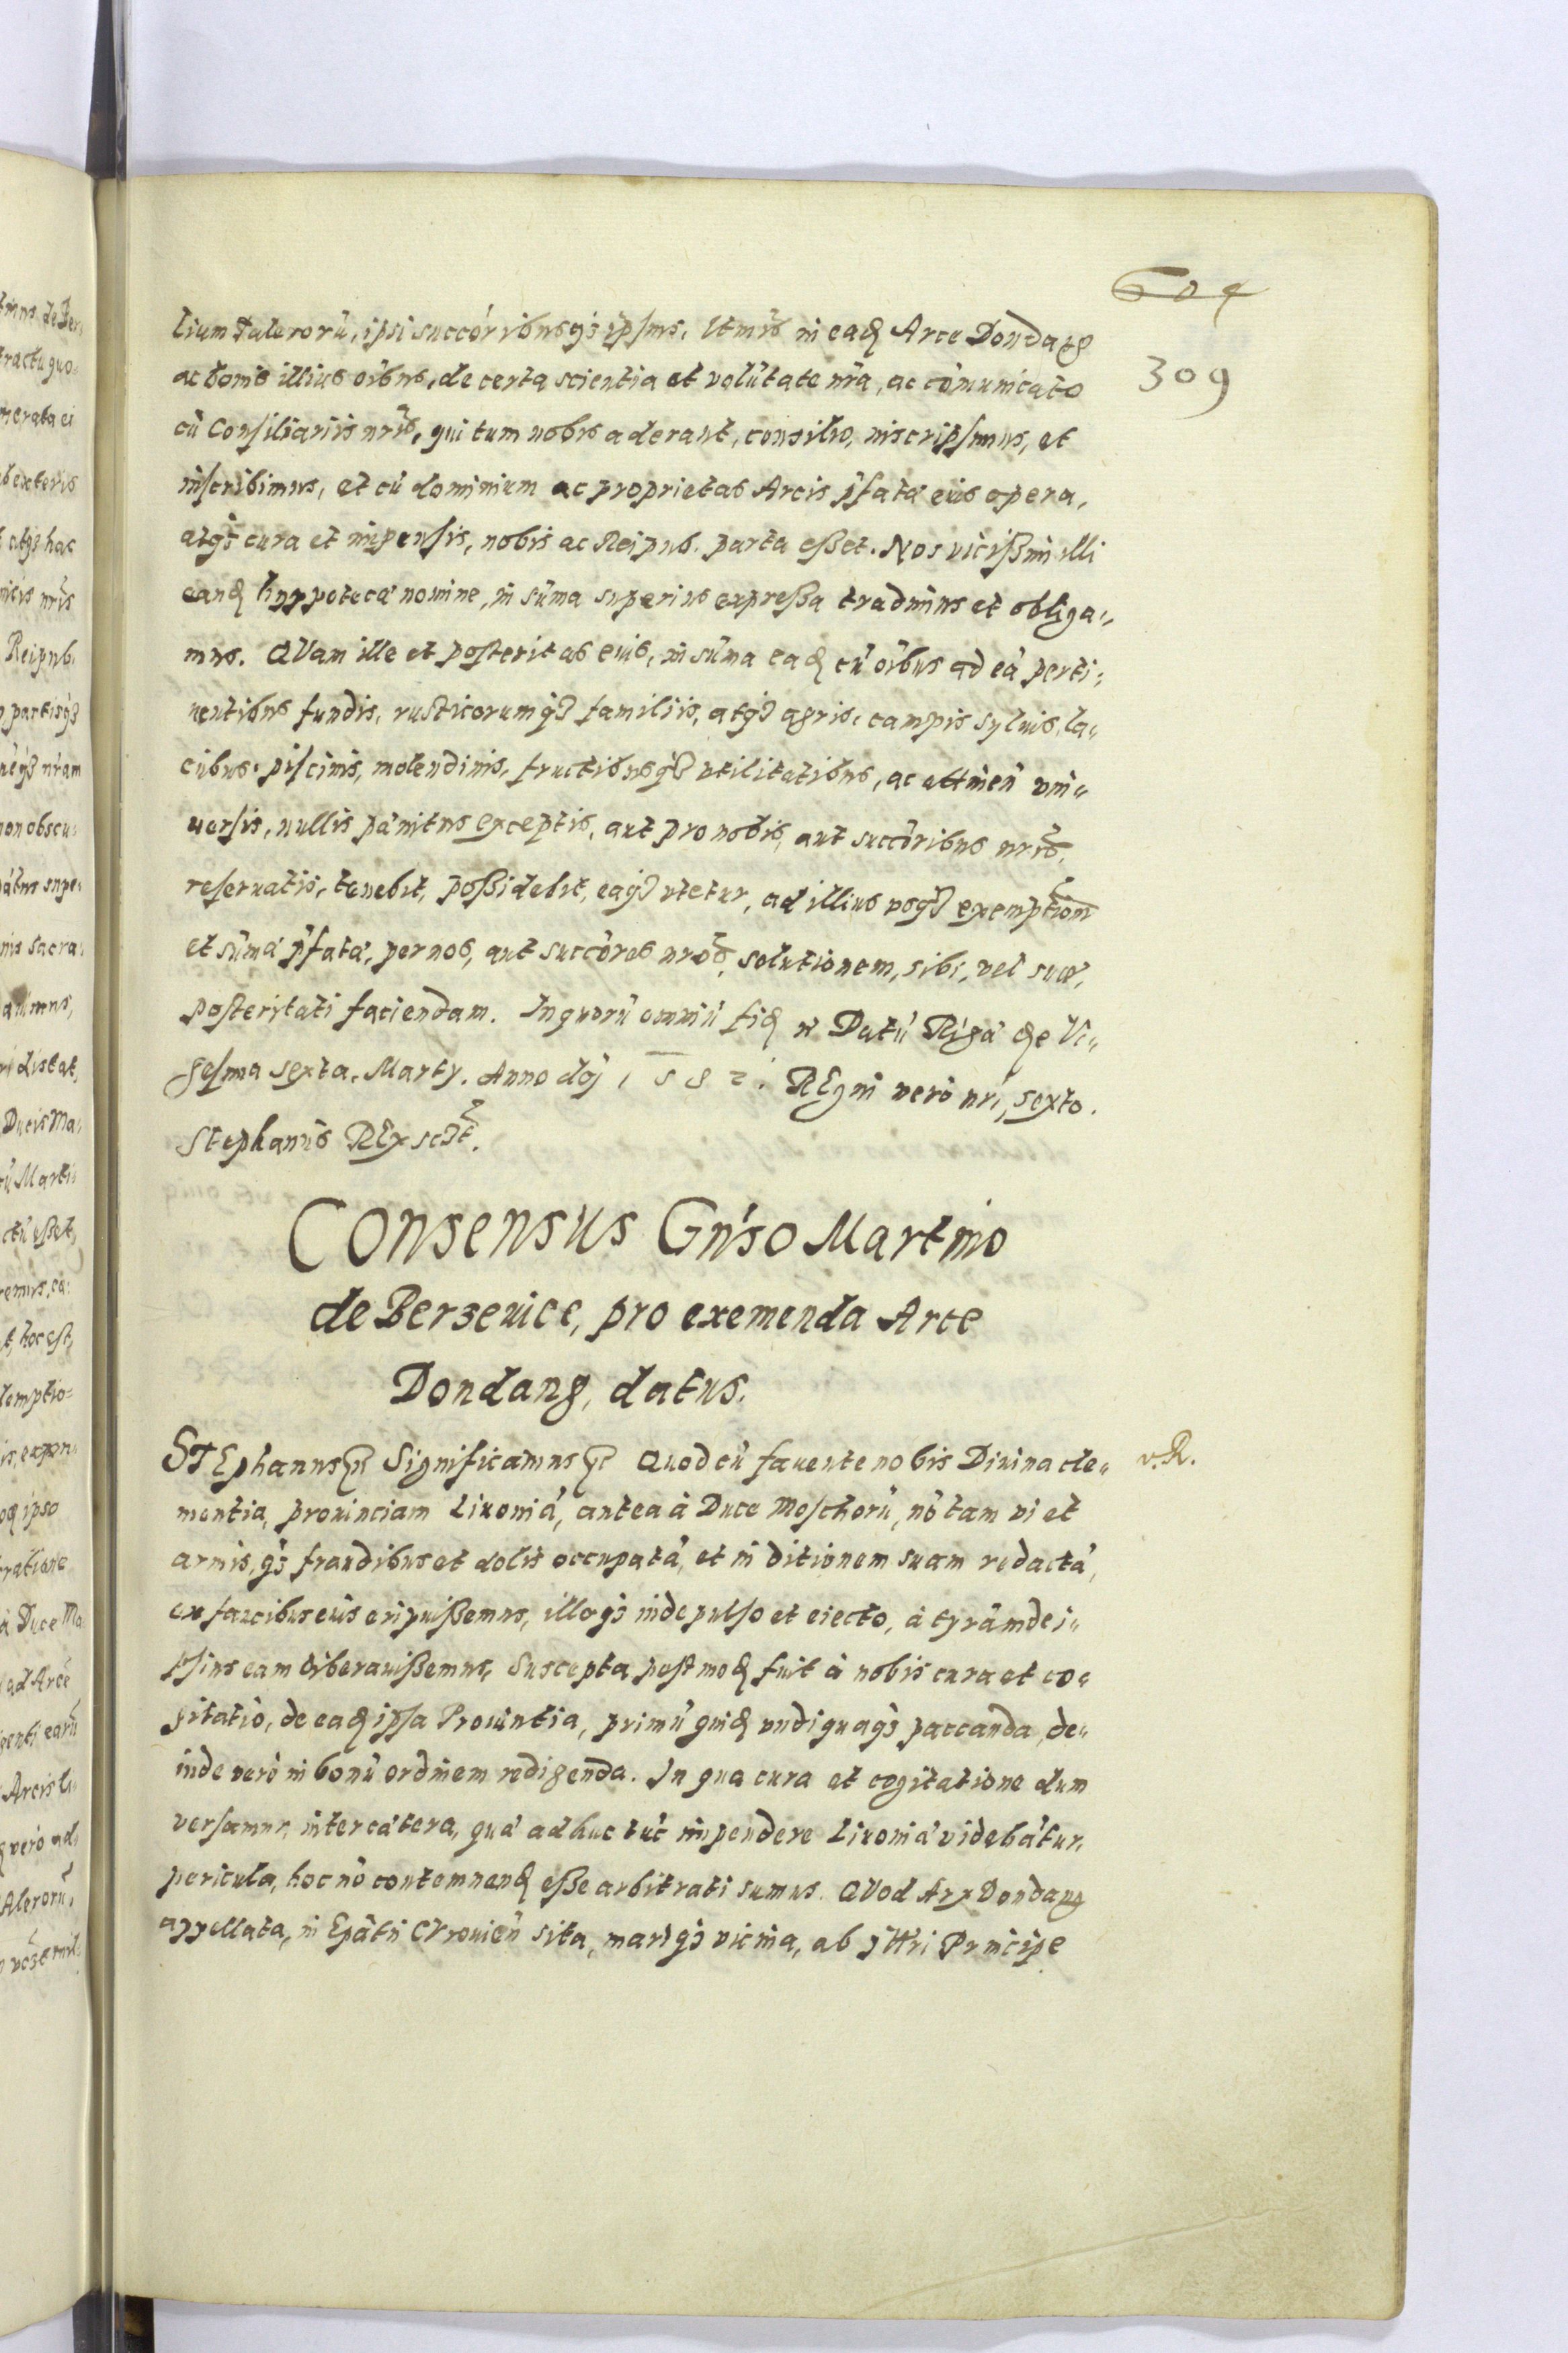 604
309
lium Talerorũ, ipsi succóribusq́s ipsius, ltimis in eaď Arce Dondag
ac bonis illius oibus, de certa scientia et volũtate nřa, ac cõmunicato
cũ Consiliariis nřis, qui tum nobis aderant, consilio, inscripsimus, et
inscribimus, et cũ dominium ac proprietas Arcis p̃fatæ eius opera,
atq́s cura et impensis, nobis ac Reipub. parta eßet. Nos vicißim illi
eanď hyppotecæ nomine, in sũma superius expreßa tradimus et obliga:
mus. QVam ille et posteritas eius, in sũma eaď cũ oibus ad eã perti:
nentibus fundis, rusticorumq́ familiis, atq́ agris, campis syluis, la:
cubus, piscinis, molendinis, fructibusq́ vtilitatibus, ac attineñ vni:
uersis, nullis pænitus exceptis, aut pro nobis, aut succôribus nřis,
reseruatis, tenebit, poßidebit, eaq́ vtetur, ad illius vsq́ exemption̄
et sũmæ p̃fatæ, per nos, aut succôres nřos, solutionem, sibi, vel suæ,
posteritati faciendam. In quorũ omniũ fiď Datũ Rigæ die Vi:
gesima sexta. Marty. Anno dñj 1582. REgni verò nři, sexto.
Stephanus REx scřt.
Consensus Gn'so Martino
de Berzeuice, pro exemenda Arce
Dondang, datus.
v. R.
STEphannus Significamus Quod cũ fauente nobis Diuina cle:
mentia, prouinciam Liuoniã, antea à Duce Moschorũ, nõ tam vi et
armis, q́s fraudibus et dolis occupatã, et in ditionem suam redactã,
ex faucibus eius eripuißemus, illoq́s inde pulso et eiecto, à tyrãnide i:
psius eam liberauißemus, Suscepta postmoď fuit à nobis cura et co:
gitatio, de eaď ipsa Prouintia, primũ quiď vndiquaq́s paccanda, de:
inde verò in bonũ ordinem redigenda. In qua cura et cogitatione dum
versamur, inter cætera, quæ adhuc tũc impendere Liuoniæ videbãtur,
pericula, hoc nõ contemnenď eße arbitrati sumus. QVod Arx Dondang
appellata, in Epãtu CVronieñ sita, mariq́s vicina, ab Illři Principe